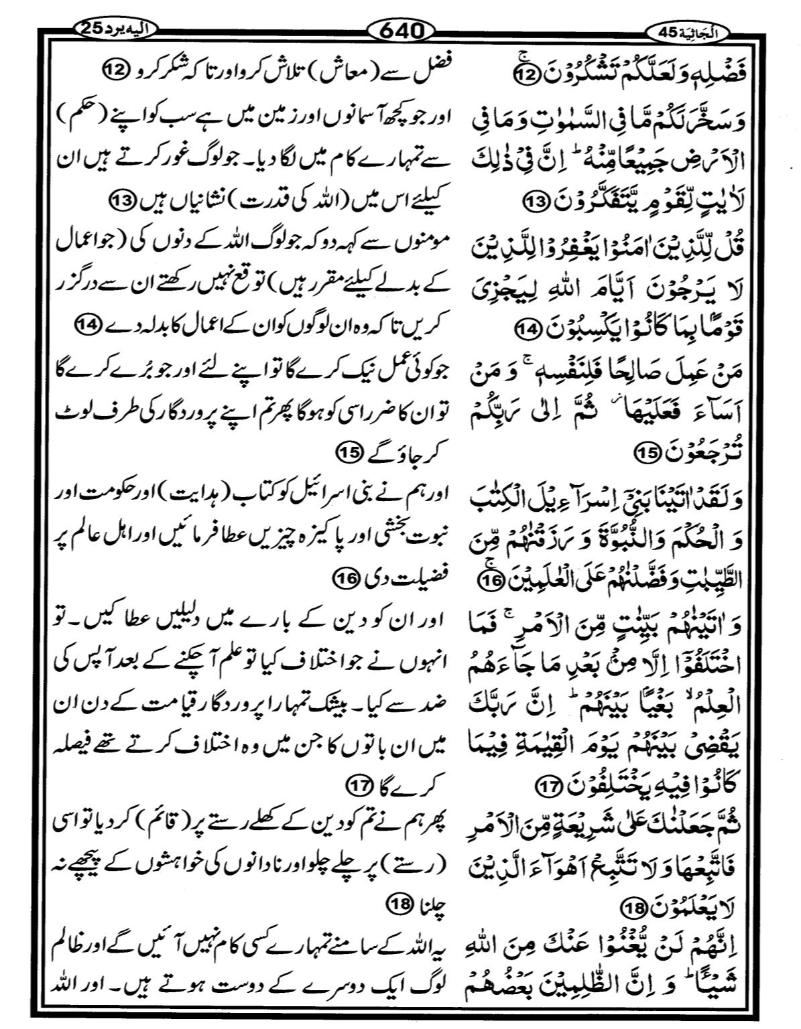 الجاثية 45
640
اليه يرد 25
فَضۡلِهٖ وَلَعَلَّكُمۡ تَشۡكُرُوۡنَۚ ⑫
وَسَخَّرَ لَكُمۡ مَّا فِى السَّمٰوٰتِ وَمَا فِى
الۡاَرۡضِ جَمِيۡعًا مِّنۡهُ‌ ؕ اِنَّ فِىۡ ذٰلِكَ
لَاٰيٰتٍ لِّقَوۡمٍ يَّتَفَكَّرُوۡنَ ⑬
قُلْ لِّلَّذِيۡنَ اٰمَنُوۡا يَغۡفِرُوۡا لِلَّذِيۡنَ
لَا يَرۡجُوۡنَ اَيَّامَ اللّٰهِ لِيَجۡزِىَ
قَوۡمًۢا بِمَا كَانُوۡا يَكۡسِبُوۡنَ ⑭
مَنۡ عَمِلَ صَالِحًا فَلِنَفۡسِهٖ‌ۚ وَمَنۡ
اَسَآءَ فَعَلَيۡهَا ثُمَّ اِلٰى رَبِّكُمۡ
تُرۡجَعُوۡنَ ⑮
وَلَقَدۡ اٰتَيۡنَا بَنِىۡۤ اِسۡرَآءِيۡلَ الۡكِتٰبَ
وَالۡحُكۡمَ وَالنُّبُوَّةَ وَرَزَقۡنٰهُمۡ مِّنَ
الطَّيِّبٰتِ وَفَضَّلۡنٰهُمۡ عَلَى الۡعٰلَمِيۡنَ‌ۚ ⑯
وَاٰتَيۡنٰهُمۡ بَيِّنٰتٍ مِّنَ الۡاَمۡرِ‌ۚ فَمَا
اخۡتَلَفُوۡۤا اِلَّا مِنۡۢ بَعۡدِ مَا جَآءَهُمُ
الۡعِلۡمُ ۙ بَغۡيًاۢ بَيۡنَهُمۡ‌ؕ اِنَّ رَبَّكَ
يَقۡضِىۡ بَيۡنَهُمۡ يَوۡمَ الۡقِيٰمَةِ فِيۡمَا
كَانُوۡا فِيۡهِ يَخۡتَلِفُوۡنَ ⑰
ثُمَّ جَعَلۡنٰكَ عَلٰى شَرِيۡعَةٍ مِّنَ الۡاَمۡرِ
فَاتَّبِعۡهَا وَلَا تَتَّبِعۡ اَهۡوَآءَ الَّذِيۡنَ
لَا يَعۡلَمُوۡنَ ⑱
اِنَّهُمۡ لَنۡ يُّغۡنُوۡا عَنۡكَ مِنَ اللّٰهِ
شَيۡـًٔا‌ ؕ وَ اِنَّ الظّٰلِمِيۡنَ بَعۡضُهُمۡ
فضل سے (معاش) تلاش کرو اور تاکہ شکر کرو ⑫
اور جو کچھ آسمانوں اور زمین میں ہے سب کو اپنے (حکم)
سے تمہارے کام میں لگا دیا۔ جو لوگ غور کرتے ہیں ان
کیلئے اس میں (اللہ کی قدرت) نشانیاں ہیں ⑬
مومنوں سے کہہ دو کہ جو لوگ اللہ کے دنوں کی (جو اعمال
کے بدلے کیلئے مقرر ہیں) توقع نہیں رکھتے ان سے درگزر
کریں تاکہ وہ ان لوگوں کو ان کے اعمال کا بدلہ دے ⑭
جو کوئی عمل نیک کرے گا تو اپنے لئے اور جو بُرے کرے گا
تو ان کا ضرر اسی کو ہوگا پھر تم اپنے پروردگار کی طرف لوٹ
کر جاؤ گے ⑮
اور ہم نے بنی اسرائیل کو کتاب (ہدایت) اور حکومت اور
نبوت بخشی اور پاکیزہ چیزیں عطا فرمائیں اور اہل عالم پر
فضیلت دی ⑯
اور ان کو دین کے بارے میں دلیلیں عطا کیں۔ تو
انہوں نے جو اختلاف کیا تو علم آ چکنے کے بعد آپس کی
ضد سے کیا۔ بیشک تمہارا پروردگار قیامت کے دن ان
میں ان باتوں کا جن میں وہ اختلاف کرتے تھے فیصلہ
کرے گا ⑰
پھر ہم نے تم کو دین کے کھلے رستے پر (قائم) کر دیا تو اسی
(رستے) پر چلے چلو اور نادانوں کی خواہشوں کے پیچھے نہ
چلنا ⑱
یہ اللہ کے سامنے تمہارے کسی کام نہیں آئیں گے اور ظالم
لوگ ایک دوسرے کے دوست ہوتے ہیں۔ اور اللہ